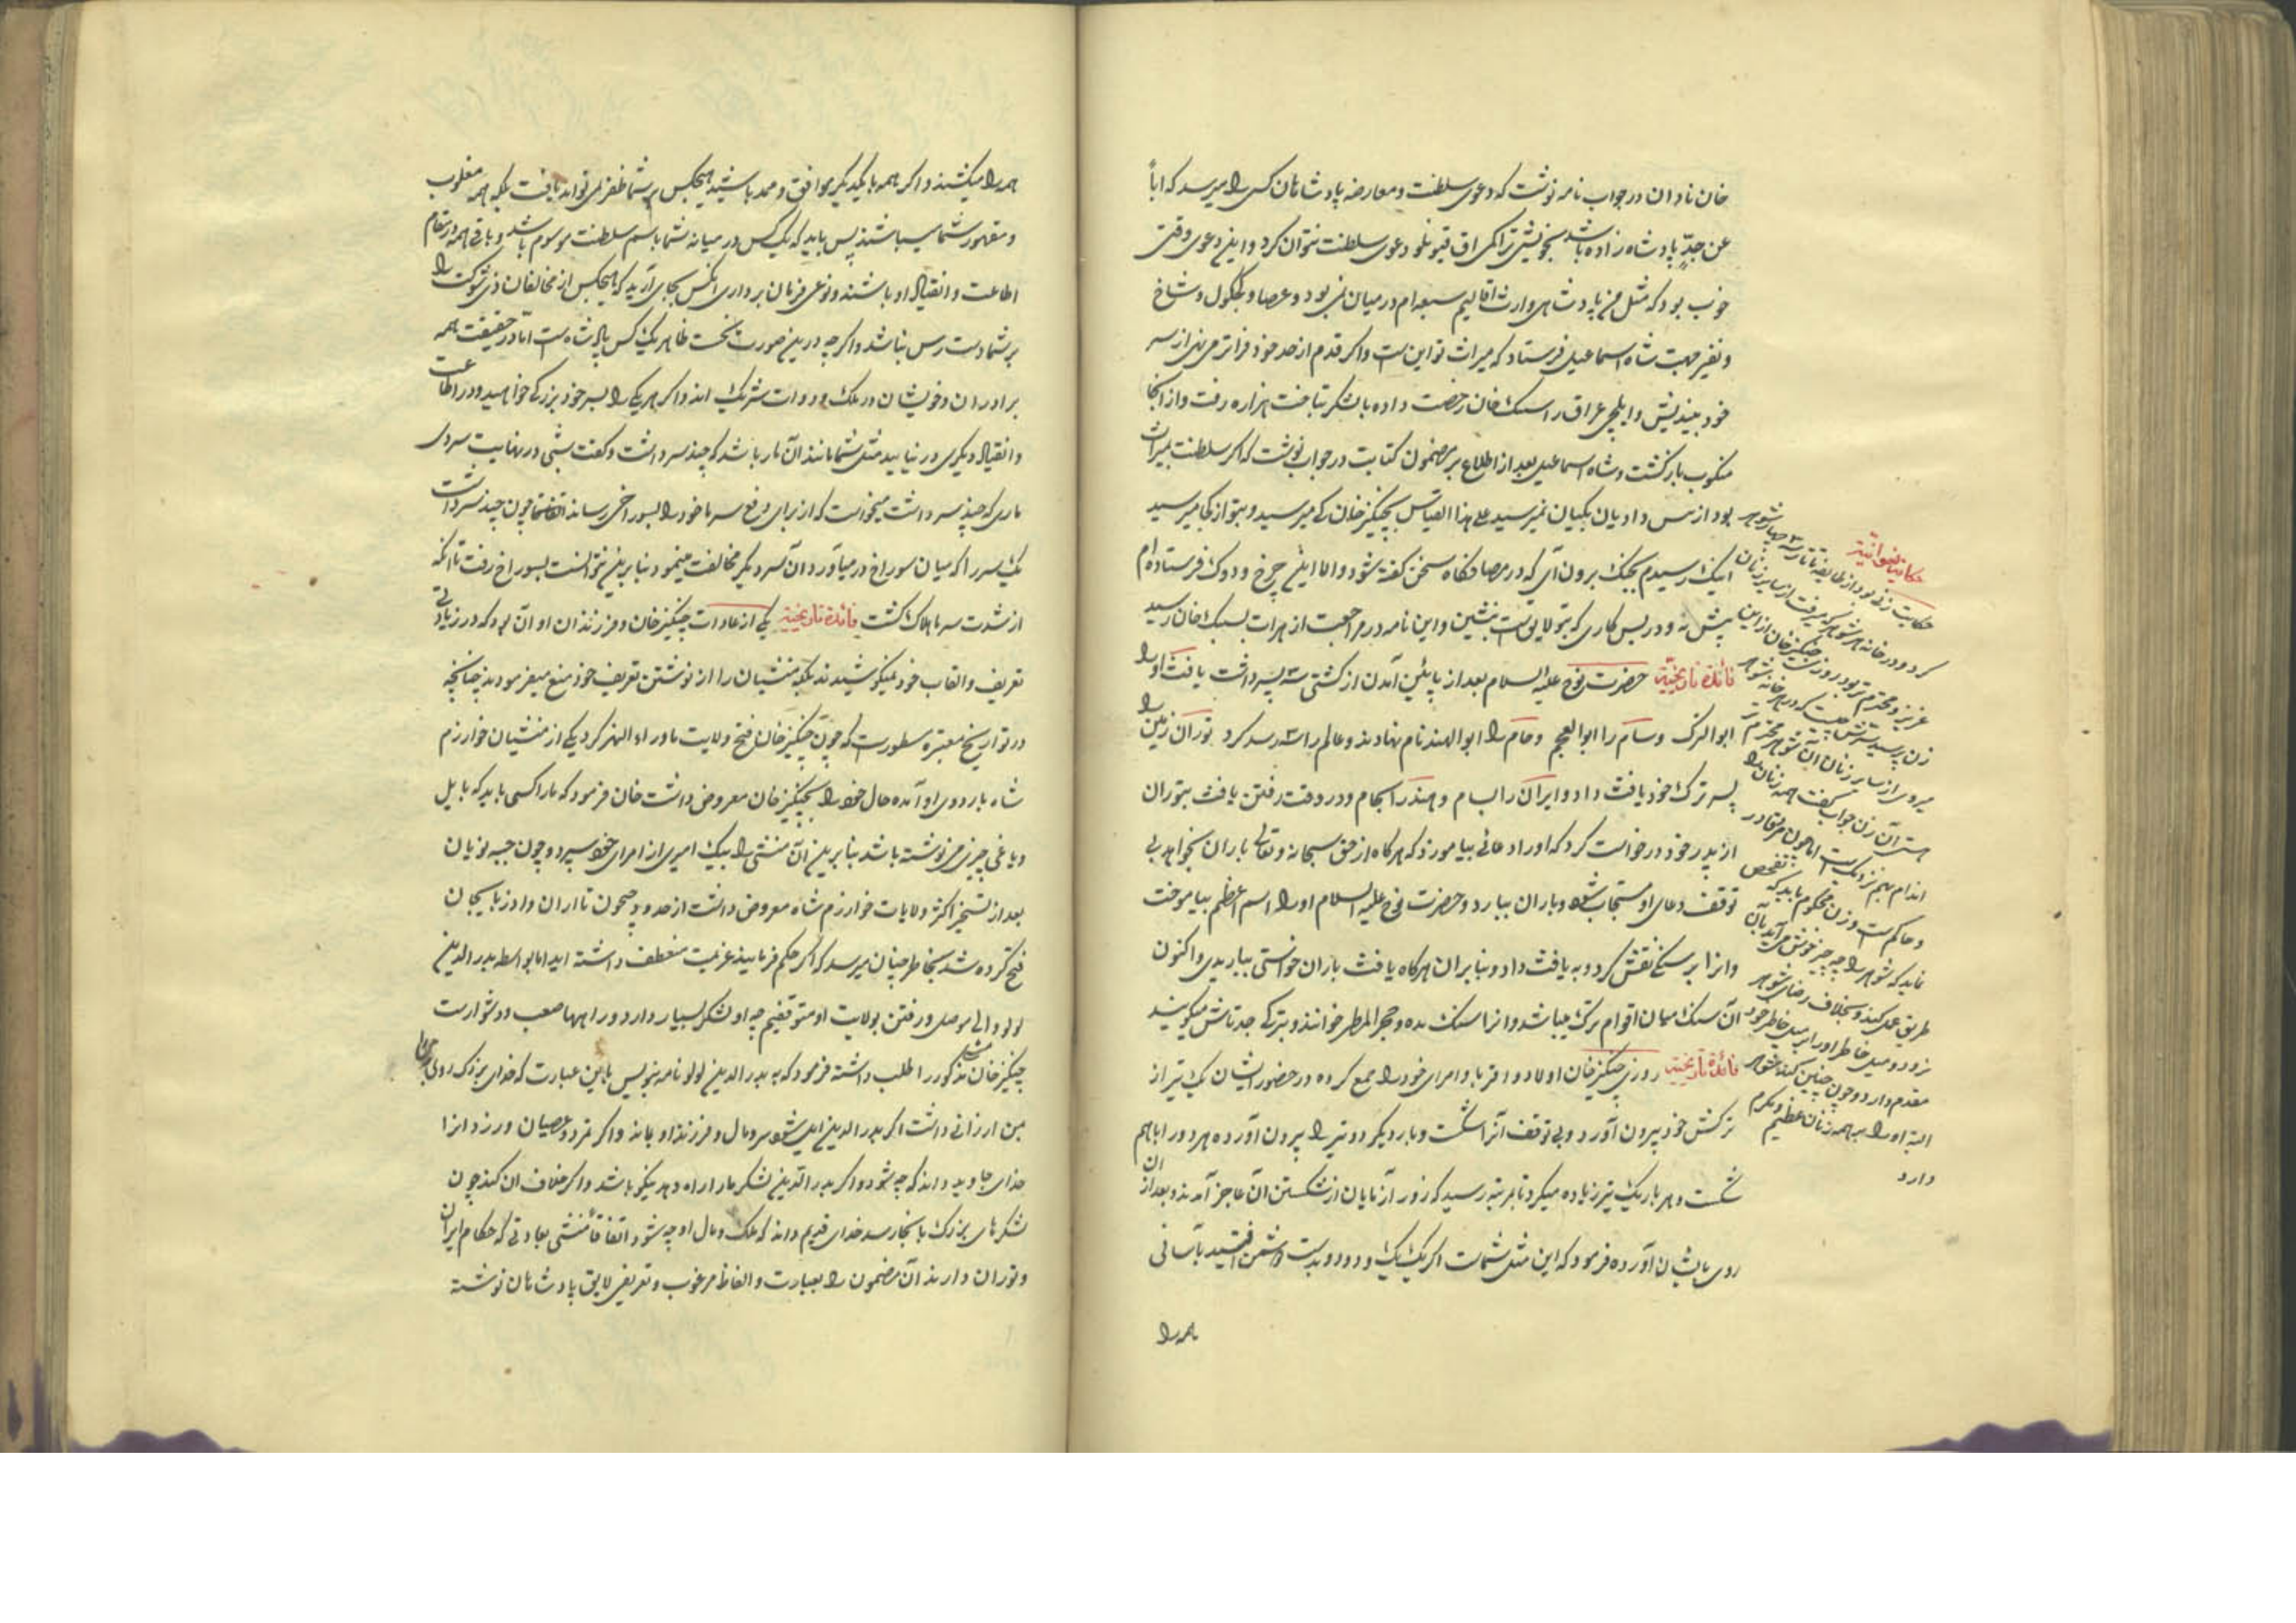 خان نادان در جواب نامه نوشت که دعوی سلطنت و معارضه پادشاهان کسی را میرسد که اباً
عن جدٍّ پادشاه زاده باشد بخویشی تراکمی اق قیونلو دعوی سلطنت نتوان کرد و این دعوی وقتی
خوب بود که مثل من پادشاهی وارث اقالیم سبعه ام در میان نمی بود و عصا و کجکول و شاخ
و نفیر جهت شاه اسماعیل فرستاد که میراث تو این ست و اگر قدم از حد خود فراتر می نهی از سر
خود بیندیش و ایلچی عراق را سبک خان رخصت داده با لشکر بتاخت هزاره رفت و از انجا
منکوب بازگشت و شاه اسماعیل بعد از اطلاع بر مضمون کتابت در جواب نوشت که اگر سلطنت بمیراث
بود از پیشدادیان بکیان نمیرسید علی هذا القیاس بچنگیز خان کی میرسید و بتو از کجا میرسید
اینک رسیدم بجنگ برون آی که در مصافگاه سخن گفته شود و الا اینک چرخ و دوک فرستاده ام
پیش نه و در پس کاری که بتو لایق ست بنشین و این نامه در مراجعت از هرات بسبک خان رسید
فائدة تاریخیّة حضرت نوح علیه السلام بعد از پائین آمدن از کشتی سه پسر داشت یافث او را
ابو الترک و سام را ابو العجم و حام را ابو الهند نام نهادند و عالم را سه رسد کرد توران زمین را
پسر ترک خود یافث داد و ایران را بسام و هند را بحام و در وقت رفتن یافث بتوران
از پدر خود درخواست کرد که او را دعائی بیاموزد که هرگاه از حق سبحانه و تعالی باران بخواهد بی
توقف دعای او مستجاب شود و باران ببارد و حضرت نوح علیه السلام او را اسم اعظم بیاموخت
و انرا بر سنگی نقش کرد و به یافث داد و بنابر ان هرگاه یافث باران خواستی بباریدی و اکنون
آن سنگ میان اقوام ترک میباشد و انرا سنک یده و حجر المطر خوانند و بترکی جده تاش میگویند
فائدة تاریخیّة روزی چنگیز خان اولاد و اقربا و امرای خود را جمع کرده در حضور ایشان یک تیر از
ترکش خود بیرون آورد و بی توقف آنرا شکست و بار دیگر دو تیر را بیرون آورده هر دو را باهم
شکست و هر بار یک تیر زیاده میکرد تا بمرتبه رسید که زور آزمایان از شکستن آن عاجز آمدند و بعد از ان
روی بایشان آورده فرمود که این مثل شماست اگر یک یک و دو دو بدست دشمن افتید بآسانی
همه را
حکایت نسوانیّة
حکایت زنی بود از طایفه تاتار سه چهار شوهر
کرده و در خانه هر شوهر که میرفت از سایر زنان
عزیز و محترم تر بود روزی چنگیز خان از این
زن پرسید سرّش چیست که در هر خانه شوهر
میروی از سایر زنان آن شوهر محترم تر
هستی آن زن جواب گفت همه زنان را
اندام بهم نزدیک ست اما چون مرد قادر
و حاکم ست و زن محکوم باید که تفحص
نماید که شوهر را چه چیز خوش می آید بآن
طریق عمل کند و بخلاف رضای شوهر
نرود و میل خاطر او را بر میل خاطر خود
مقدم دارد و چون چنین کند شوهر
البته او را بر همه زنان عظیم و مکرم
دارد
همه را میکشند و اگر همه با یکدیگر موافق و ممد باشید هیچکس بر شما ظفر نمی تواند یافت بلکه همه مغلوب
و مقهور شما میباشند پس باید که یک کس در میانه شما باسم سلطنت موسوم باشد و باقی همه در مقام
اطاعت و انقیاد او باشند و نوعی فرمان برداری انکس بجای آرید که هیچکس از مخالفان ذی شوکت را
بر شما دست رس نباشد و اگر چه درین صورت بحسب ظاهر یک کس پادشاه ست اما در حقیقت همه
برادران و خویشان در ملک و دولت شریک اند و اگر هر یکی را بسر خود بزرگی خواهید و در اطاعت
و انقیاد دیگری در نیایید مثل شما مانند آن مار باشد که چند سر داشت و گفت شبی در نهایت سردی
ماری که چند سر داشت میخواست که از برای دفع سرما خود را بسوراخی رساند اتفاقا چون چند سر داشت
یک سر را که میان سوراخ در میآورد آن سر دیگر مخالفت مینمود بنابرین نتوانست بسوراخ رفت تا انکه
از شدت سرما هلاک گشت فائدة تاریخیّة یکی از عادات چنگیز خان و فرزندان او آن بود که در زیادتی
تعریف و القاب خود نمیکوشیدند بلکه منشیان را از نوشتن تعریف خود منع میفرمودند چنانچه
در تواریخ معتبره مسطور ست که چون چنگیز خان فتح ولایت ماوراء النهر کرد یکی از منشیان خوارزم
شاه باردوی او آمده حال خود را بچنگیز خان معروض داشت خان فرمود که ما را کسی باید که بایل
و یاغی چیزی می نوشته باشد بنابرین آن منشی را بیک امیری از امرای خود سپرد و چون جبه نویان
بعد از تسخیر اکثر ولایات خوارزم شاه معروض داشت از حدود جیحون تا اران و ادربایجان
فتح کرده شد بخاطر چنان میرسد که اگر حکم فرمایند عزیمت منعطف داشته اید اما بواسطه بدر الدین
لولو والی موصل در رفتن بولایت او متوقفیم چه او لشکر بسیار دارد و راهها صعب و دشوار ست
چنگیز خان منشی مذکور را طلب داشته فرمود که به بدر الدین لولو نامه بنویس باین عبارت که خدای بزرگ روی زمین را
بمن ارزانی داشت اگر بدر الدین ایل شود سر و مال و فرزند او بماند و اگر تمرد و عصیان ورزد انرا
خدای جاوید داند که چه شود و اگر بدر الدین لشکر ما را راه دهد نیکو باشد و اگر خلاف ان کند چون
لشکرهای بزرگ بانجا رسد خدای قدیم داند که ملک و مال او چه شود اتفاقاً منشی بعادتی که حکام ایران
و توران دارند آن مضمون را بعبارت و الفاظ مرغوب و تعریفی لایق پادشاهان نوشته